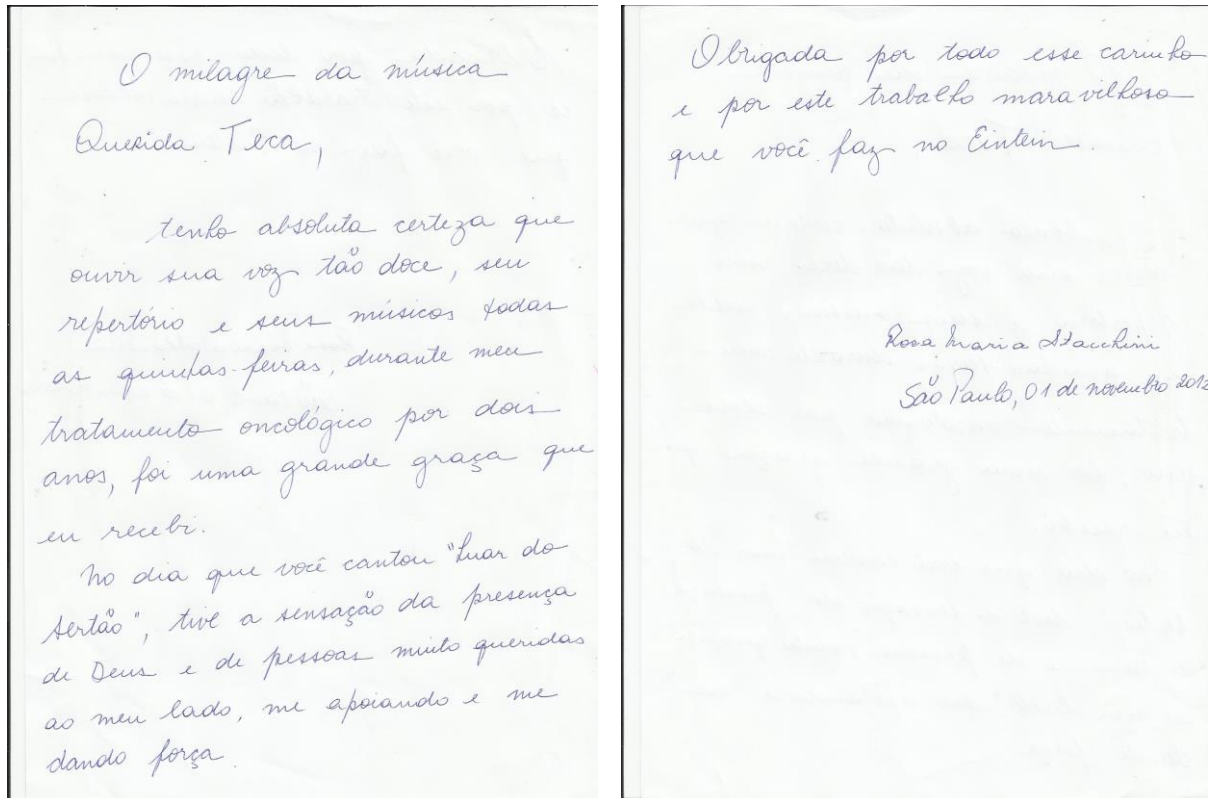 O milagre da música
Querida Teca,
tenho absoluta certeza que
ouvir sua voz tão doce, seu
repertório e seus músicos todas
as quintas-feiras, durante meu
tratamento oncológico por dois
anos, foi uma grande graça que
eu recebi.
No dia que você cantou "Luar do
Sertão", tive a sensação da presença
de Deus e de pessoas muito queridas
ao meu lado, me apoiando e me
dando força.
Obrigada por todo esse carinho
e por este trabalho maravilhoso
que você faz no Eintein.
Rosa Maria Stacchini
São Paulo, 01 de novembro 2012